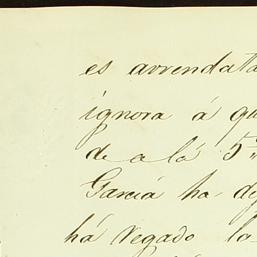 es arrendata
ignora á qu
de a lá 5ª
García ha de
há Vegado la